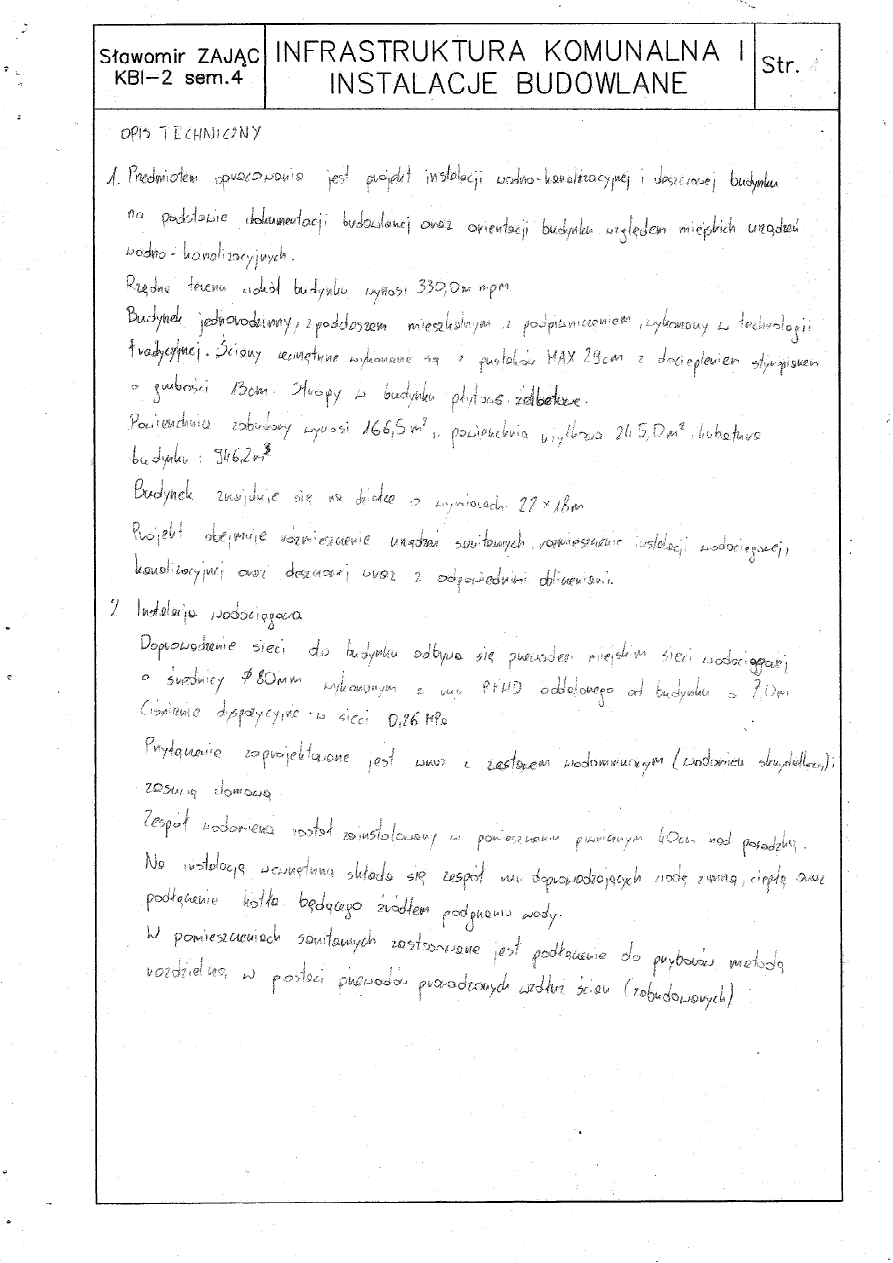 Sławomir ZAJĄC
KBI-2 sem.4
INFRASTRUKTURA KOMUNALNA I
INSTALACJE BUDOWLANE
Str.
OPIS TECHNICZNY
1. Przedmiotem opracowania jest projekt instalacji wodno-kanalizacyjnej i deszczowej budynku
na podstawie dokumentacji budowlanej oraz orientacji budynku względem miejskich urządzeń
wodno-kanalizacyjnych.
Rzędna terenu wokół budynku wynosi 330,0m npm
Budynek jednorodzinny, z poddaszem mieszkalnym z podpiwniczeniem, wykonany w technologii
tradycyjnej. Ściany zewnętrzne wykonane są z pustaków MAX 29cm z dociepleniem styropianem
o grubości 13cm. Stropy w budynku płytowe żelbetowe.
Powierzchnia zabudowy wynosi 166,5m², powierzchnia użytkowa 245,0m², kubatura
budynku: 946,2m³
Budynek znajduje się na działce o wymiarach 27 x 18m
Projekt obejmuje rozmieszczenie urządzeń sanitarnych, rozmieszczenie instalacji wodociągowej,
kanalizacyjnej oraz deszczowej wraz z odpowiednimi obliczeniami.
2 Instalacja wodociągowa
Doprowadzenie sieci do budynku odbywa się przewodem miejskim sieci wodociągowej
o średnicy Φ80mm wykonanym z rur PEHD oddalonego od budynku o 7,0m
Ciśnienie dyspozycyjne w sieci 0,26 MPa
Przyłączenie zaprojektowane jest wraz z zestawem wodomierzowym (wodomierz skrzydełkowy) i
zasuwą domową.
Zespół wodomierza został zainstalowany w pomieszczeniu piwnicznym 40cm nad posadzką.
Na instalację wewnętrzną składa się zespół rur doprowadzających wodę zimną, ciepłą oraz
podłączenie kotła będącego źródłem podgrzania wody.
W pomieszczeniach sanitarnych zastosowane jest podłączenie do przyborów metodą
rozdzielną w postaci przewodów prowadzonych wzdłuż ścian (zabudowanych)